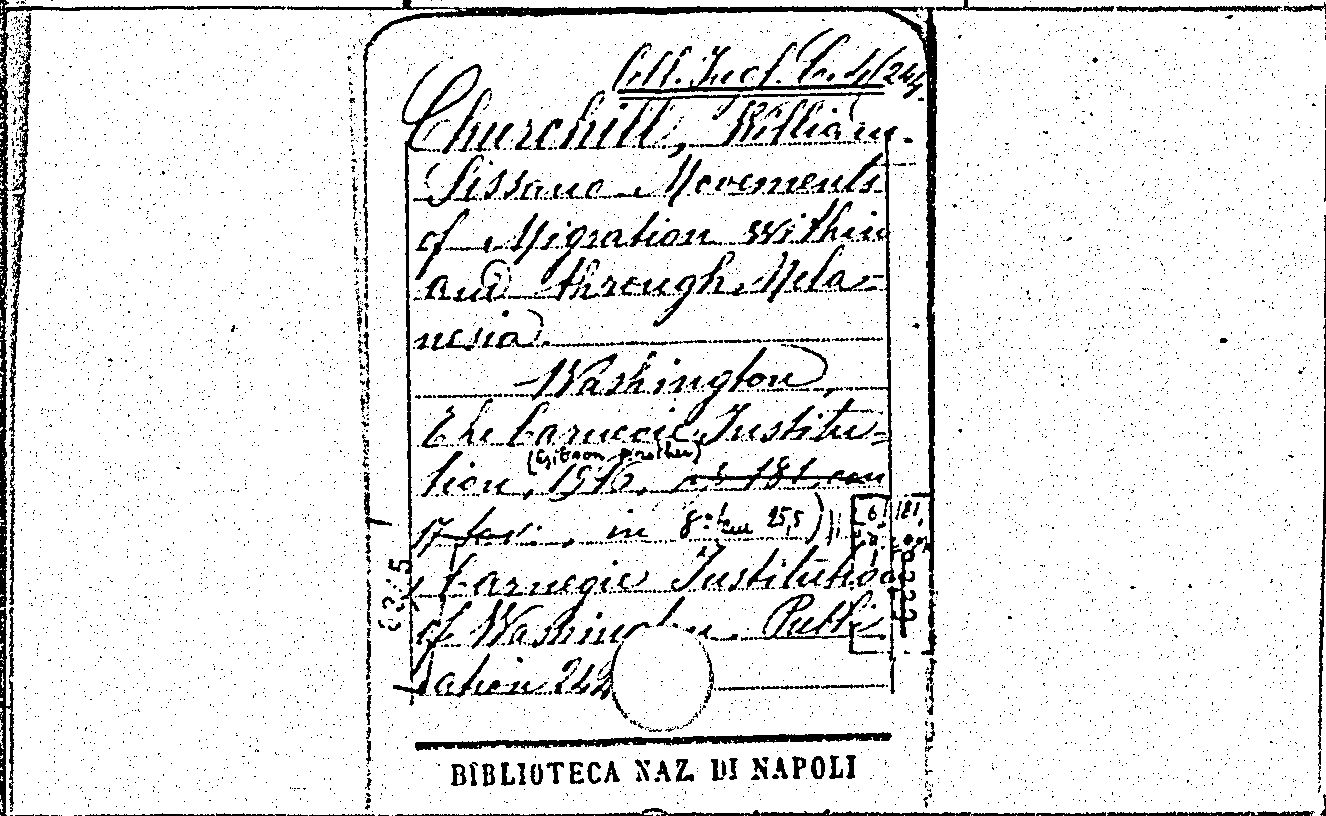 Coll. Incl. C. 4/244
Churchill, William.
Sissano Movements
of Migration within
and through Mela-
nesia.
Washington,
The Carnegie Institu-
(Gibson brother)
tion, 1916,
in 8° cm 25,5)
181,
Carnegie Institution
of Washington. Publi
cation 244
BIBLIOTECA NAZ. DI NAPOLI